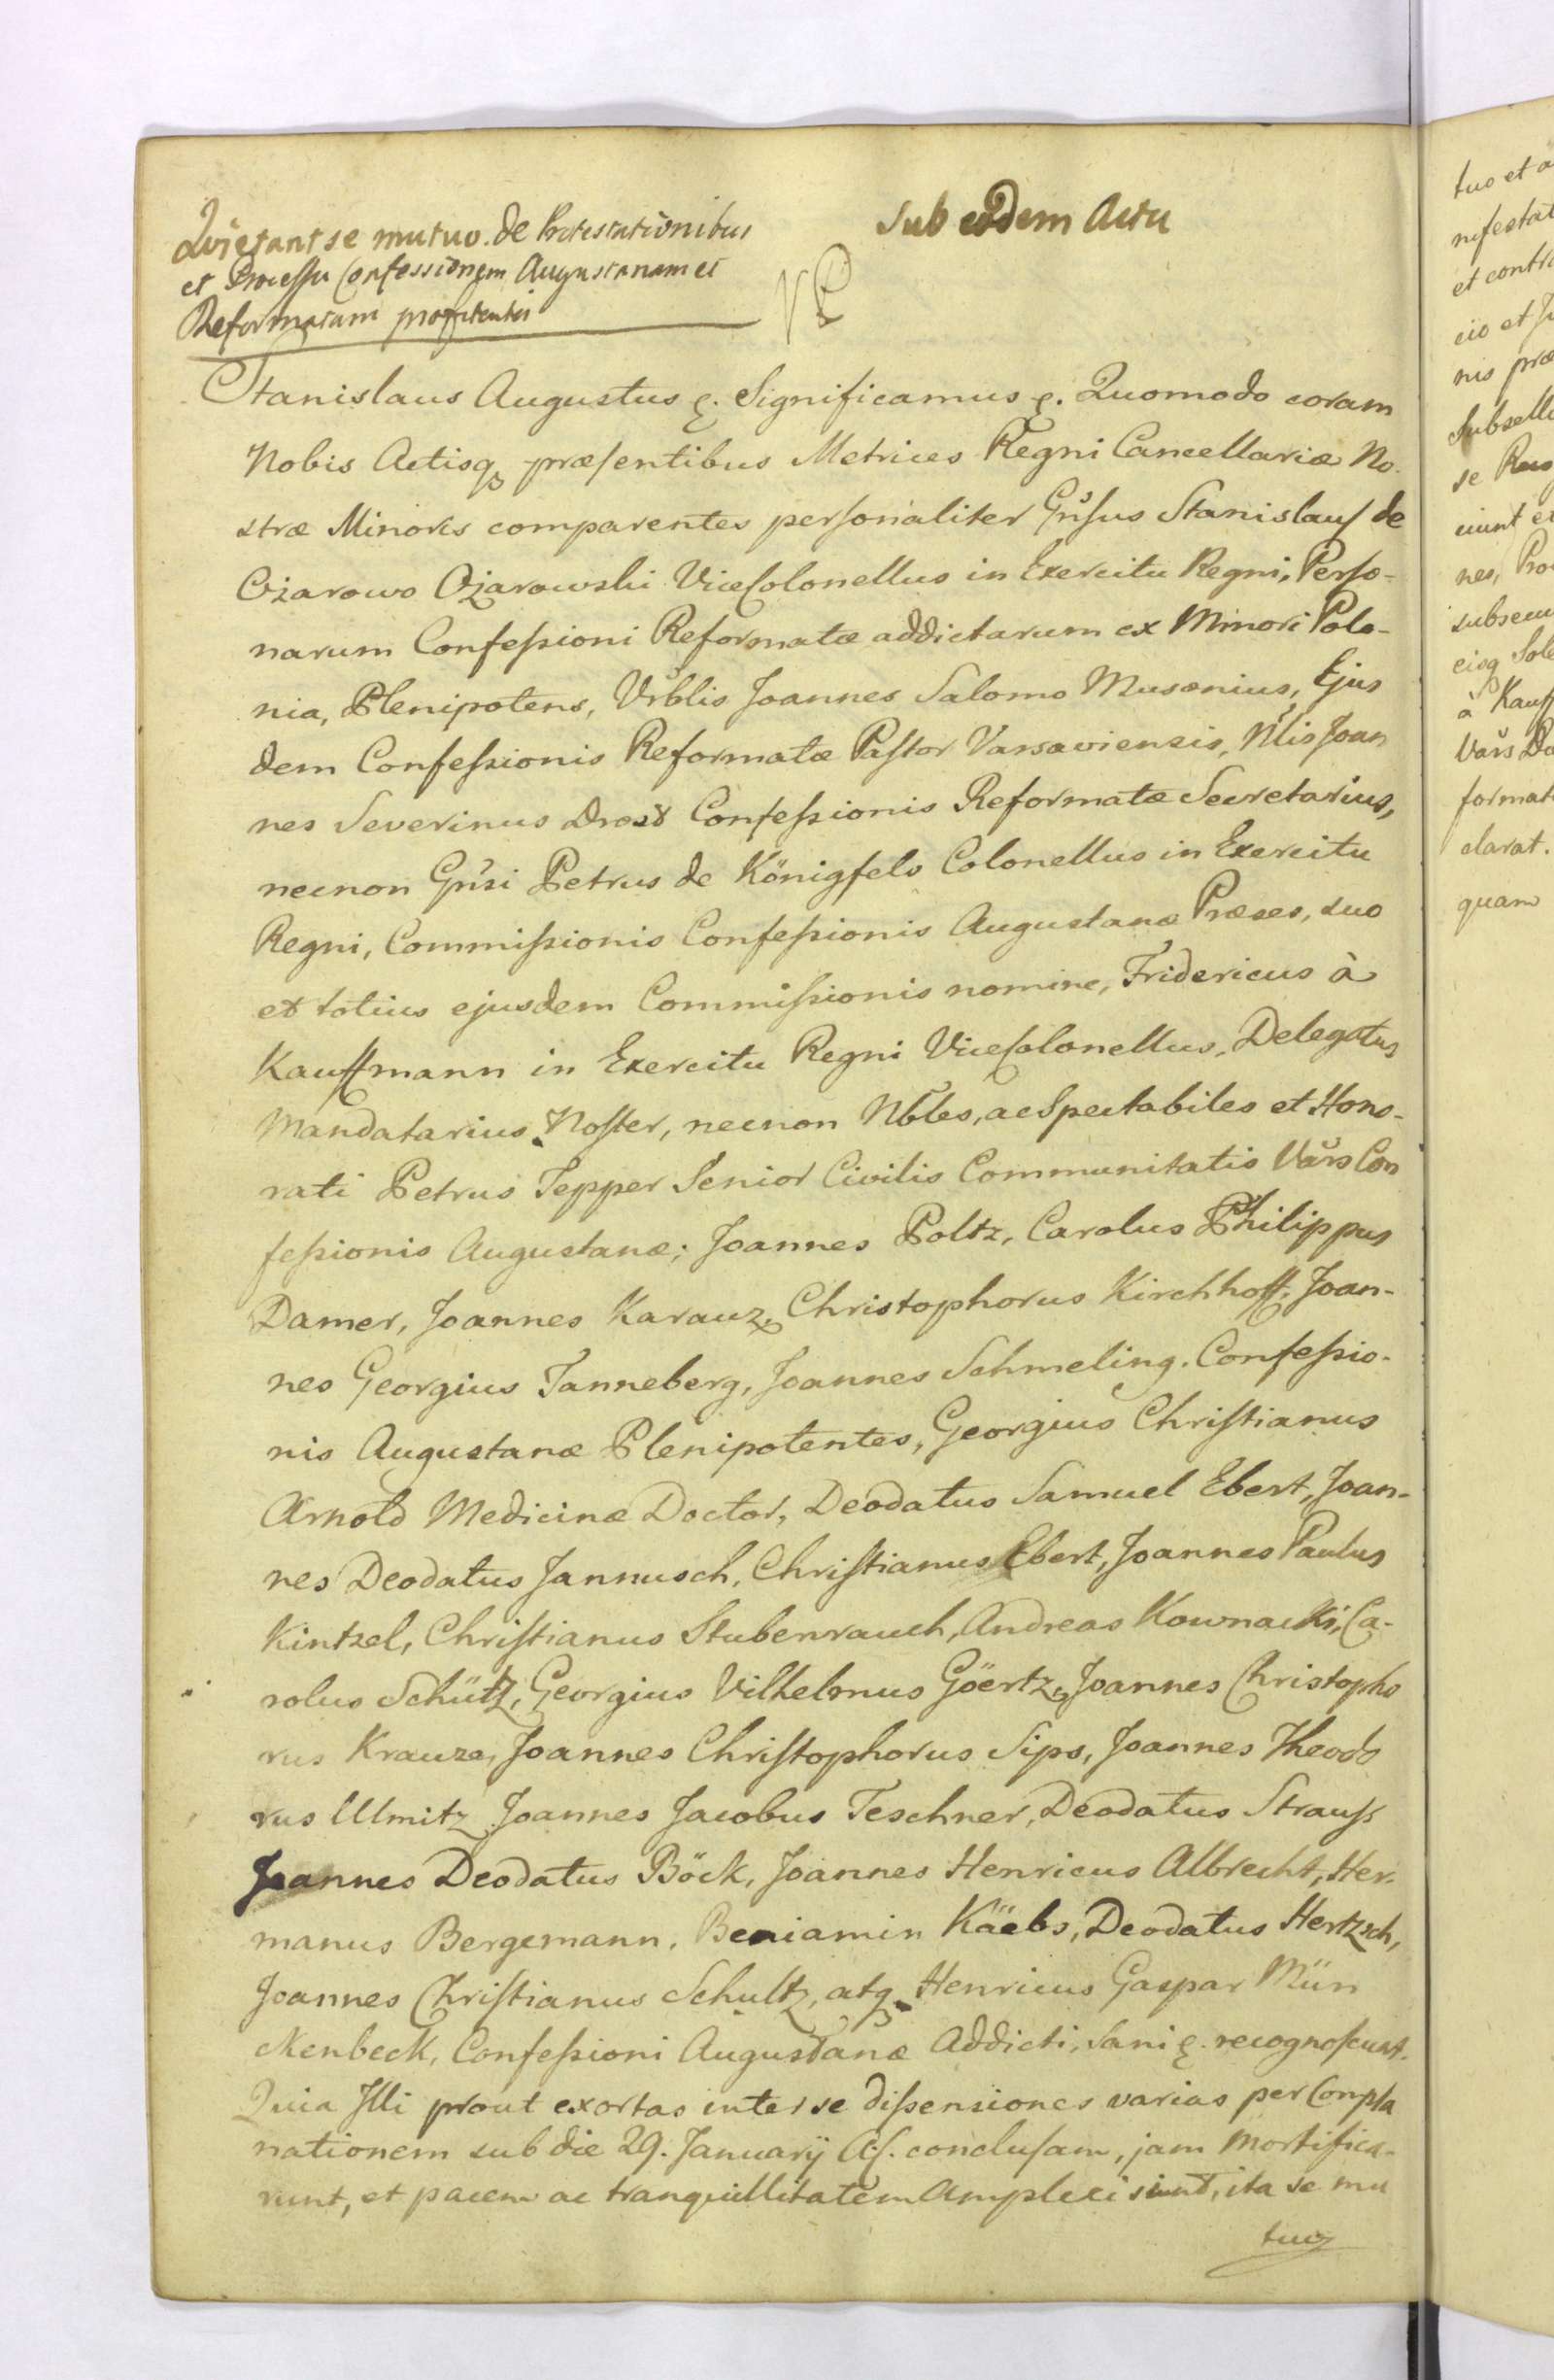 Sub eodem Actu
Quietant se mutuo de Protestationibus
et Processu Confessionem Augustanam et
Reformatam profitentes
Stanislaus Augustus ꝛ. Significamus ꝛ. Quomodo coram
Nobis Actisqꝫ præsentibus Metrices Regni Cancellariæ No-
stræ Minoris comparentes personaliter Gnsus Stanislaus de
Ożarowo Ożarowski ViceColonellus in Exercitu Regni, Perso-
narum Confessioni Reformatæ addictarum ex Minori Polo-
nia, Plenipotens, Vrblis Joannes Salomo Musonius, Ejus
dem Confessionis Reformatæ Pastor Varsaviensis, Nlis Joan
nes Severinus Confessionis Reformatæ Secretarius,
necnon Gnsi Petrus de Königfels Colonellus in Exercitu
Regni, Commissionis Confessionis Augustanæ Præses, suo
et totius ejusdem Commissionis nomine, Fridericus à
Kauffmann in Exercitu Regni ViceColonellus, Delegatus
Mandatarius Noster, necnon Nbles, ac Spectabiles et Hono-
rati Petrus Tepper Senior Civilis Communitatis Vars Con
fessionis Augustanæ; Joannes Poltz, Carolus Philippus
Damer, Joannes Karauz, Christophorus Kirchhoff, Joan-
nes Georgius Tanneberg, Joannes Schmeling. Confessio-
nis Augustanæ Plenipotentes, Georgius Christianus
Arnold Medicinæ Doctor, Deodatus Samuel Ebert, Joan-
nes Deodatus Jannusch, Christianus Ebert, Joannes Paulus
Kintzel, Christianus Stubenrauch, Andreas Kownacki, Ca-
rolus Schütz, Georgius Vilhelmus Göertz, Joannes Christopho
rus Krauze, Joannes Christophorus Sips, Joannes Theodo
rus Ulmitz Joannes Jacobus Teschner, Deodatus Strauss
Joannes Deodatus Böck, Joannes Henricus Albrecht, Her-
manus Bergemann, Beniamin Käebs, Deodatus Hertzsch,
Joannes Christianus Schultz, atqꝫ Henricus Gaspar Mün
ckenbeck, Confessioni Augustanæ Addicti, Sani ꝛ. recognoscunt.
Quia Illi prout exortas inter se dissensiones varias per Compla
nationem sub die 29. Januarÿ A. s. conclusam, jam mortifica-
runt, et pacem ac tranquillitatem Amplexi sunt, ita se mu
tuo
tuo et a
nifestat
et contr
cio et
nis præ
Subselli
se
ciunt et
nes, Pro
subsecu
eisq Sole
à Kauff
Vars De
format
clarat.
quam